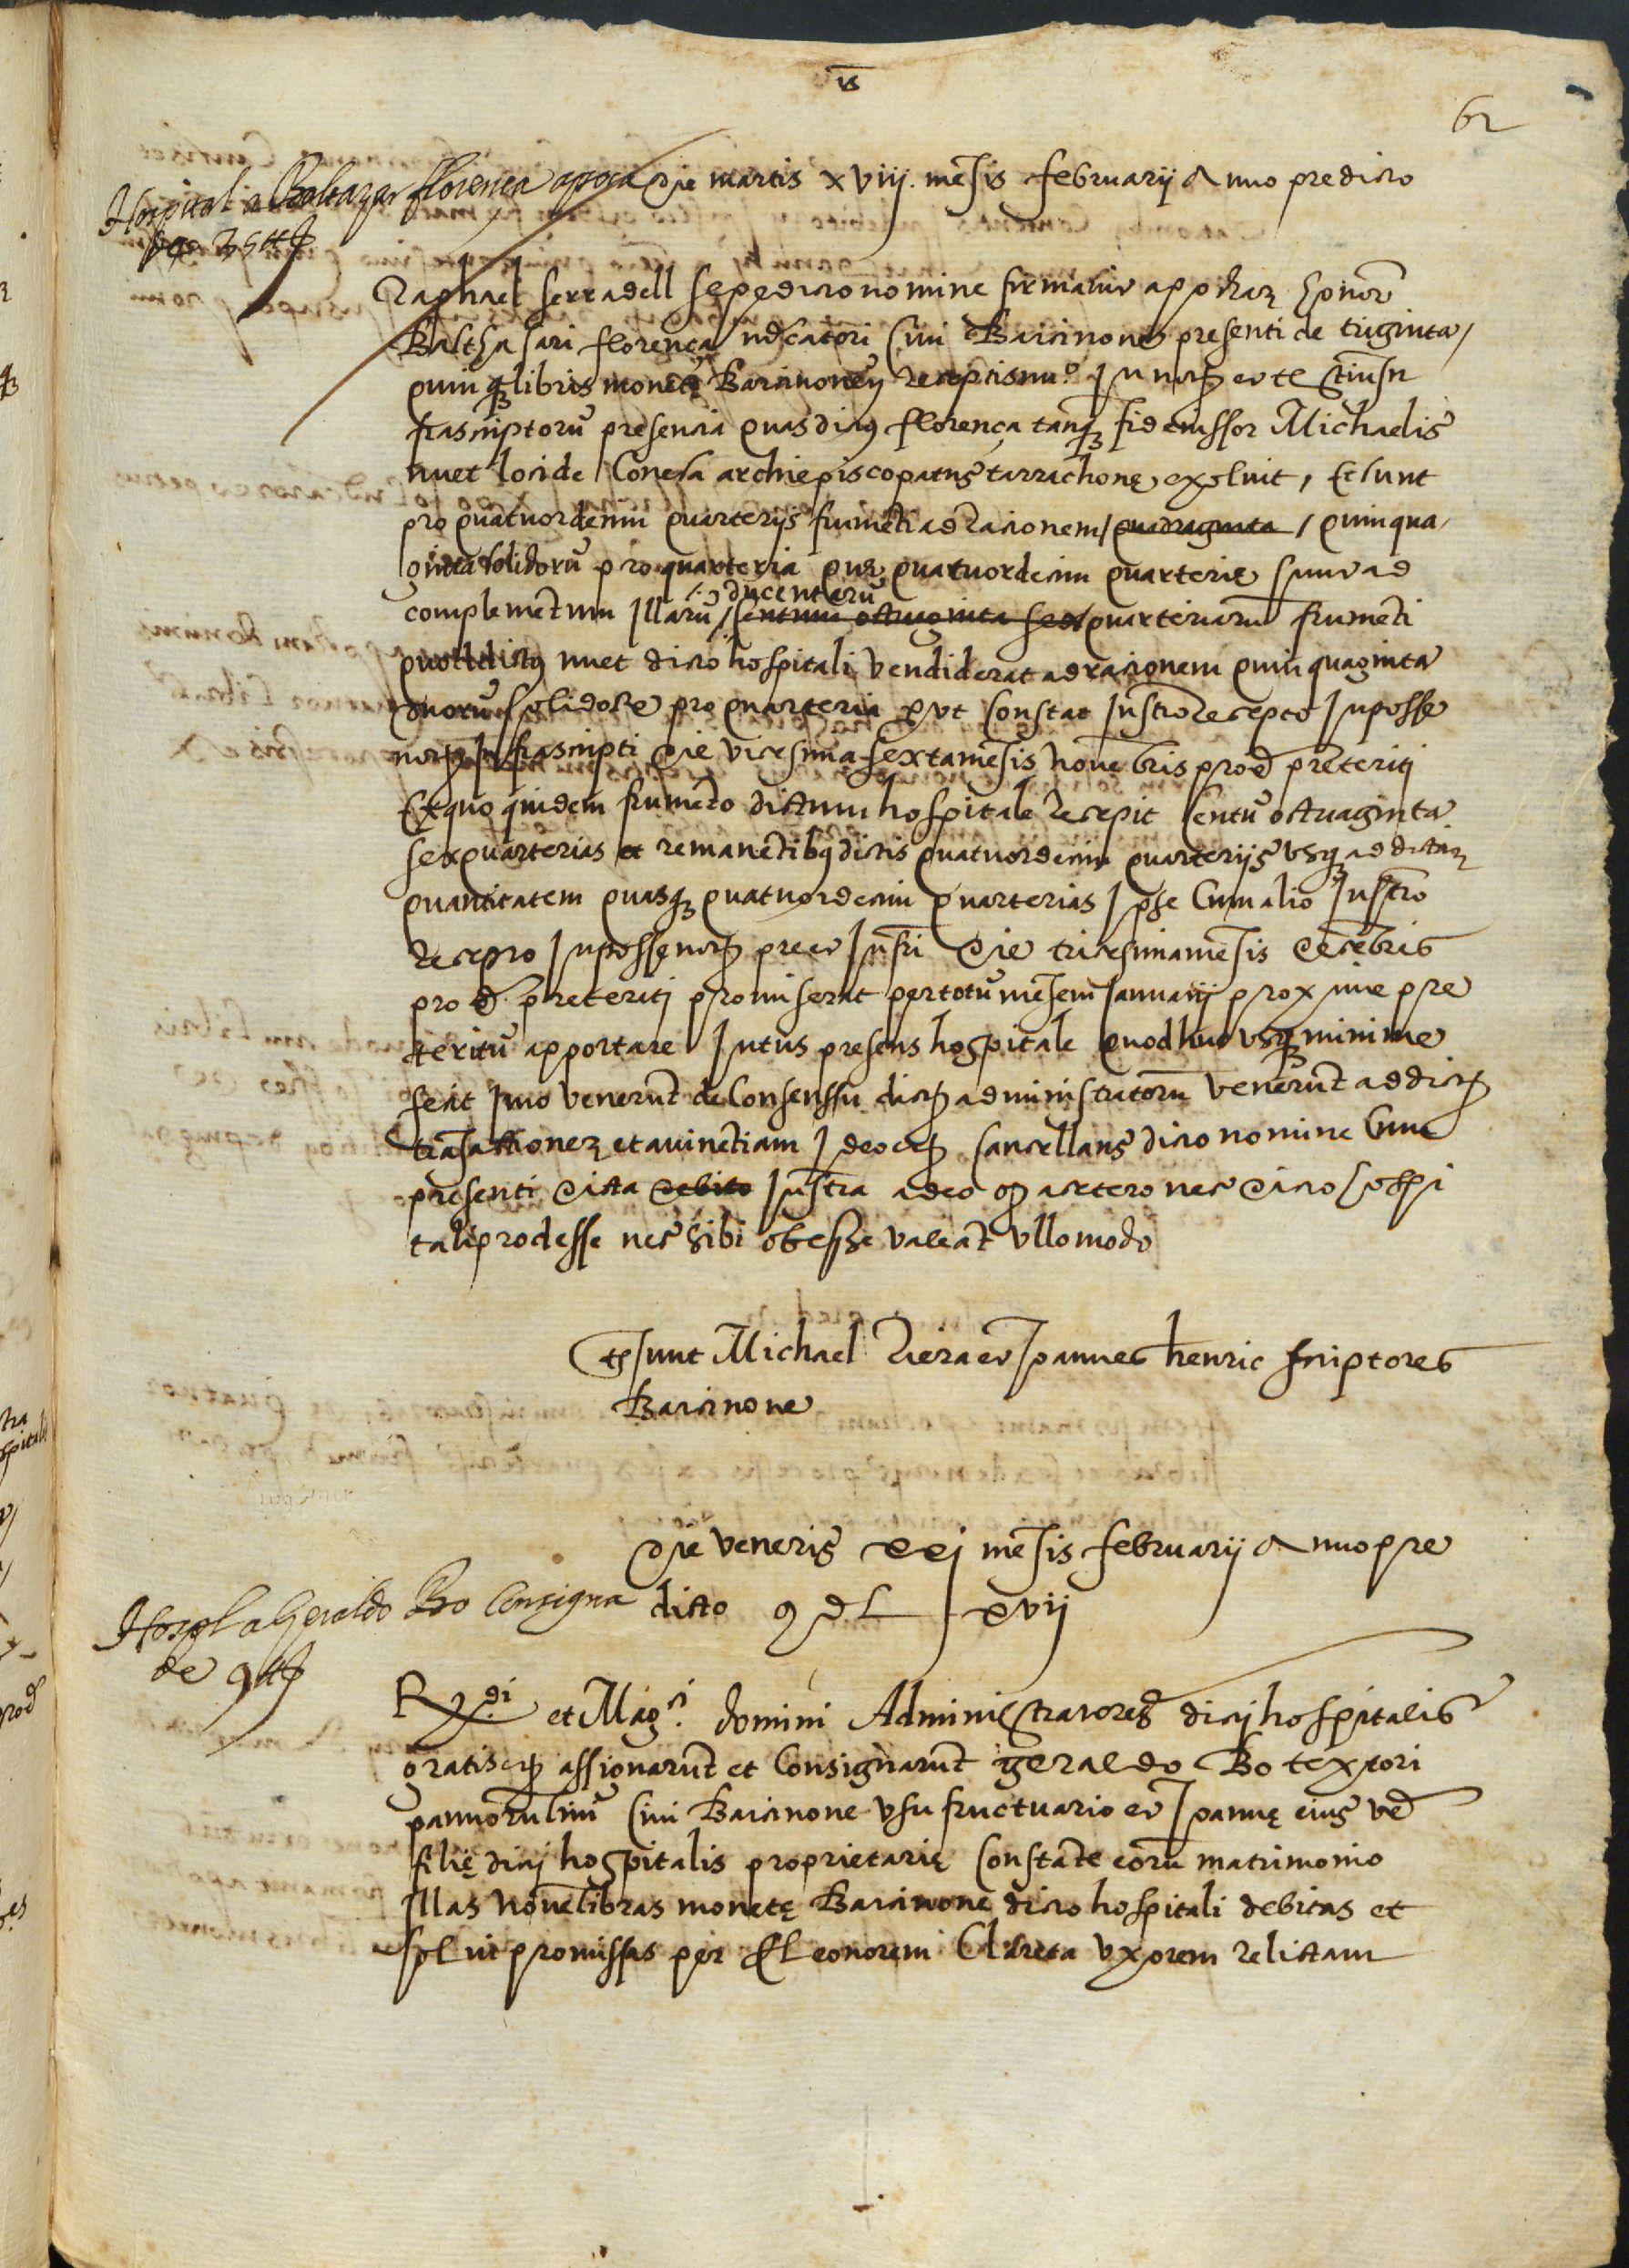 62
Hospital a Baltazar florença apoca
de 35 ll
die martis xviij. mesis februarij Anno predicto
Raphael serradell sepedicto nomine firmavit appocha honor
Balthasari florença mercatori civi Barcinone presenti de triginta
quinq libris monete Barcinone receptis nu° In not et te
frascriptoru presencia quas dictus florença tanq fideiussor Michaelis
nuet loci de Conesa archiepiscopatus tarrachone exsoluit, Et sunt
pro quatuordecim quarterijs frumeti ad racionem / quadraginta / quinqua
ginta solidoru pro quarteria que quatuordecim quarterie sunt ad
ducentaru
complemetum Illaru / centum octuaginta sex / quarteriaru frumeti
quos dictus nuet dicto hospitali vendiderat ad racionem quinquaginta
duoru solidoru pro quarteria put constat Instro recepto In posse
not Infrascripti die vicesima sexta mesis novebris prod preteriti
Ex quo quidem frumeto dictum hospitale recepit centu octuaginta
sex quarterias et remanetibus dictis quatuordecim quarterijs usq ad dictam
quantitatem quasq quatuordecim quarterias Ipse Cum alio Instro
recepto In posse not pre et Infri die tricesima mesis decebris
prod. preteriti promiserat per totu mesem Januarij proxime pre
teritu apportare Intus presens hospitale quod huc usq minime
fecit Imo venerut de Consenssu dict administratoru venerut ad dict
trasactionem et avinetiam Ideo cancellans dicto nomine Cum
presenti dicta debito Instra adeo q a cetero nec dicto hospi
tali prodesse nec sibi obesse valeat ullo modo
tes sunt Michael Riera et Joannes henric scriptores
Barcinone
die veneris xxj mesis februarij Anno pre
dicto MDLxvij
Hospl a Geraldo Bo Consigna
de 9 ll
R.di et Mag.ci domini Administratores dicti hospitalis
gratis assignarut et Consignarut geraldo Bo textori
pannoru lini civi Barcinone usufructuario et Joanne eius ux
filie dicti hospitalis proprietarie constate eoru matrimonio
Illas novem libras monete Barcinone dicto hospitali debitas et
solui promissas per Eleonorem Clareta uxorem relictam